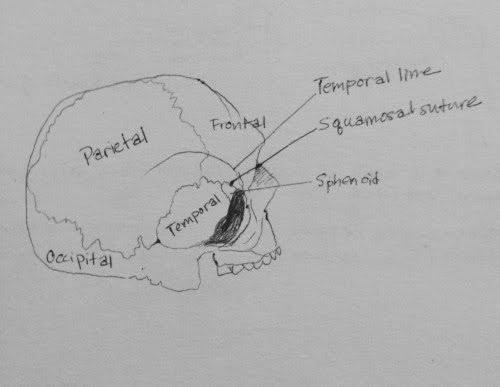 Temporal line
Frontal
Squamosal suture
Parietal
Sphenoid
Temporal
Occipital